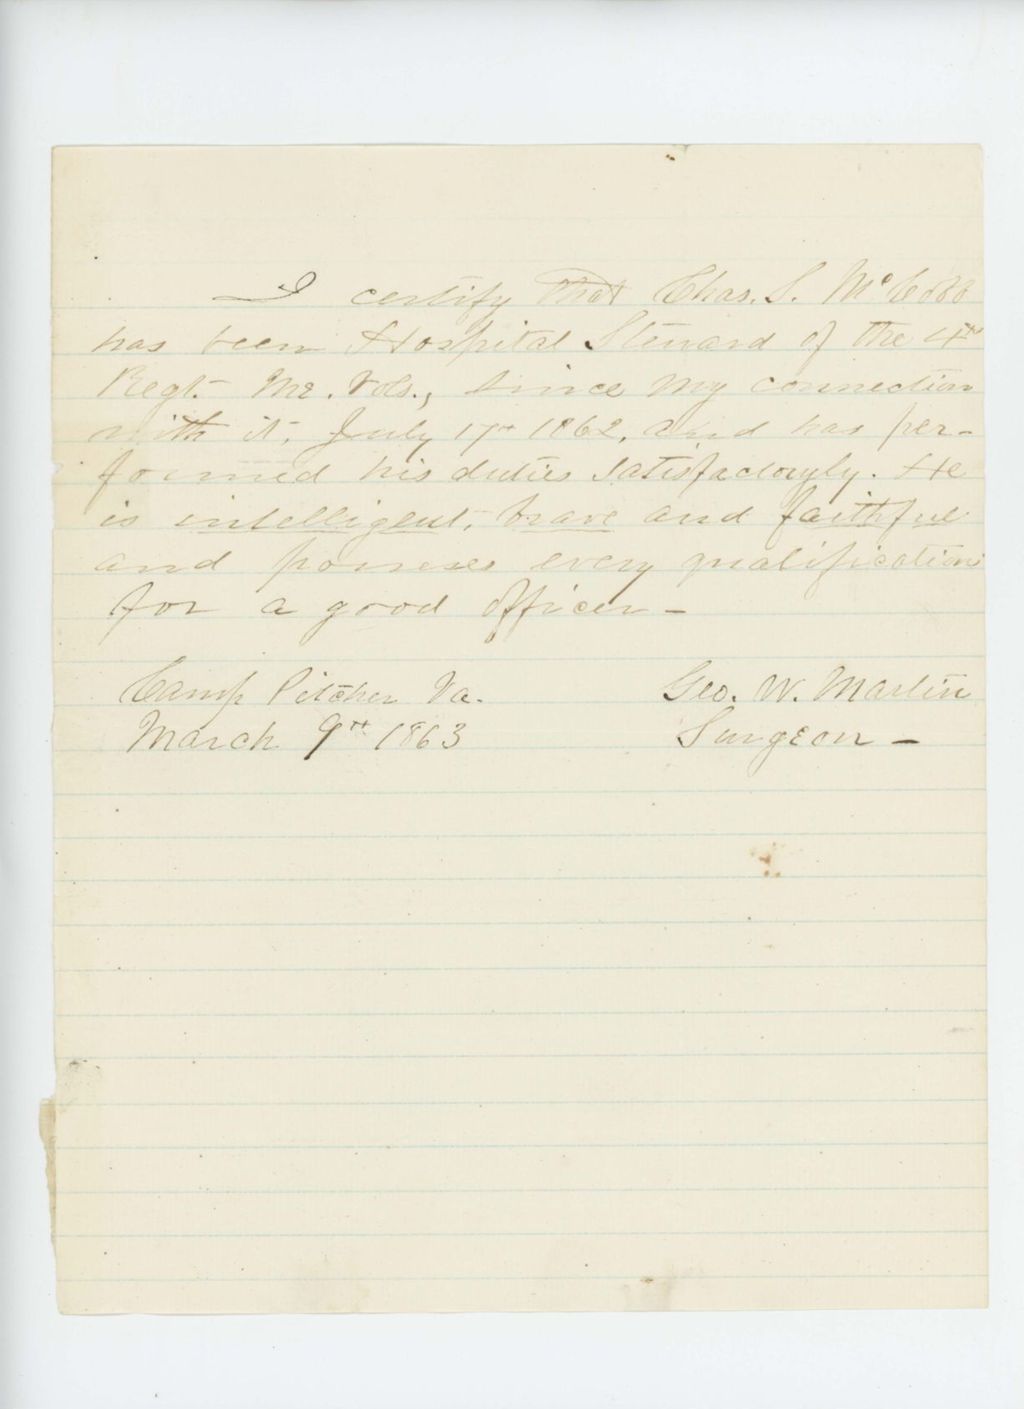 I certify that Chas. S. McCobb
has been Hospital Steward of the 4th
Regt. Me. Vols., since my connection
with it, July 17th 1862, and has per-
formed his duties satisfactorily. He
is intelligent, brave and faithful
and possesses every qualification
for a good officer –
Camp Pitcher Va.
March 9th 1863
Geo. W. Martin
Surgeon –